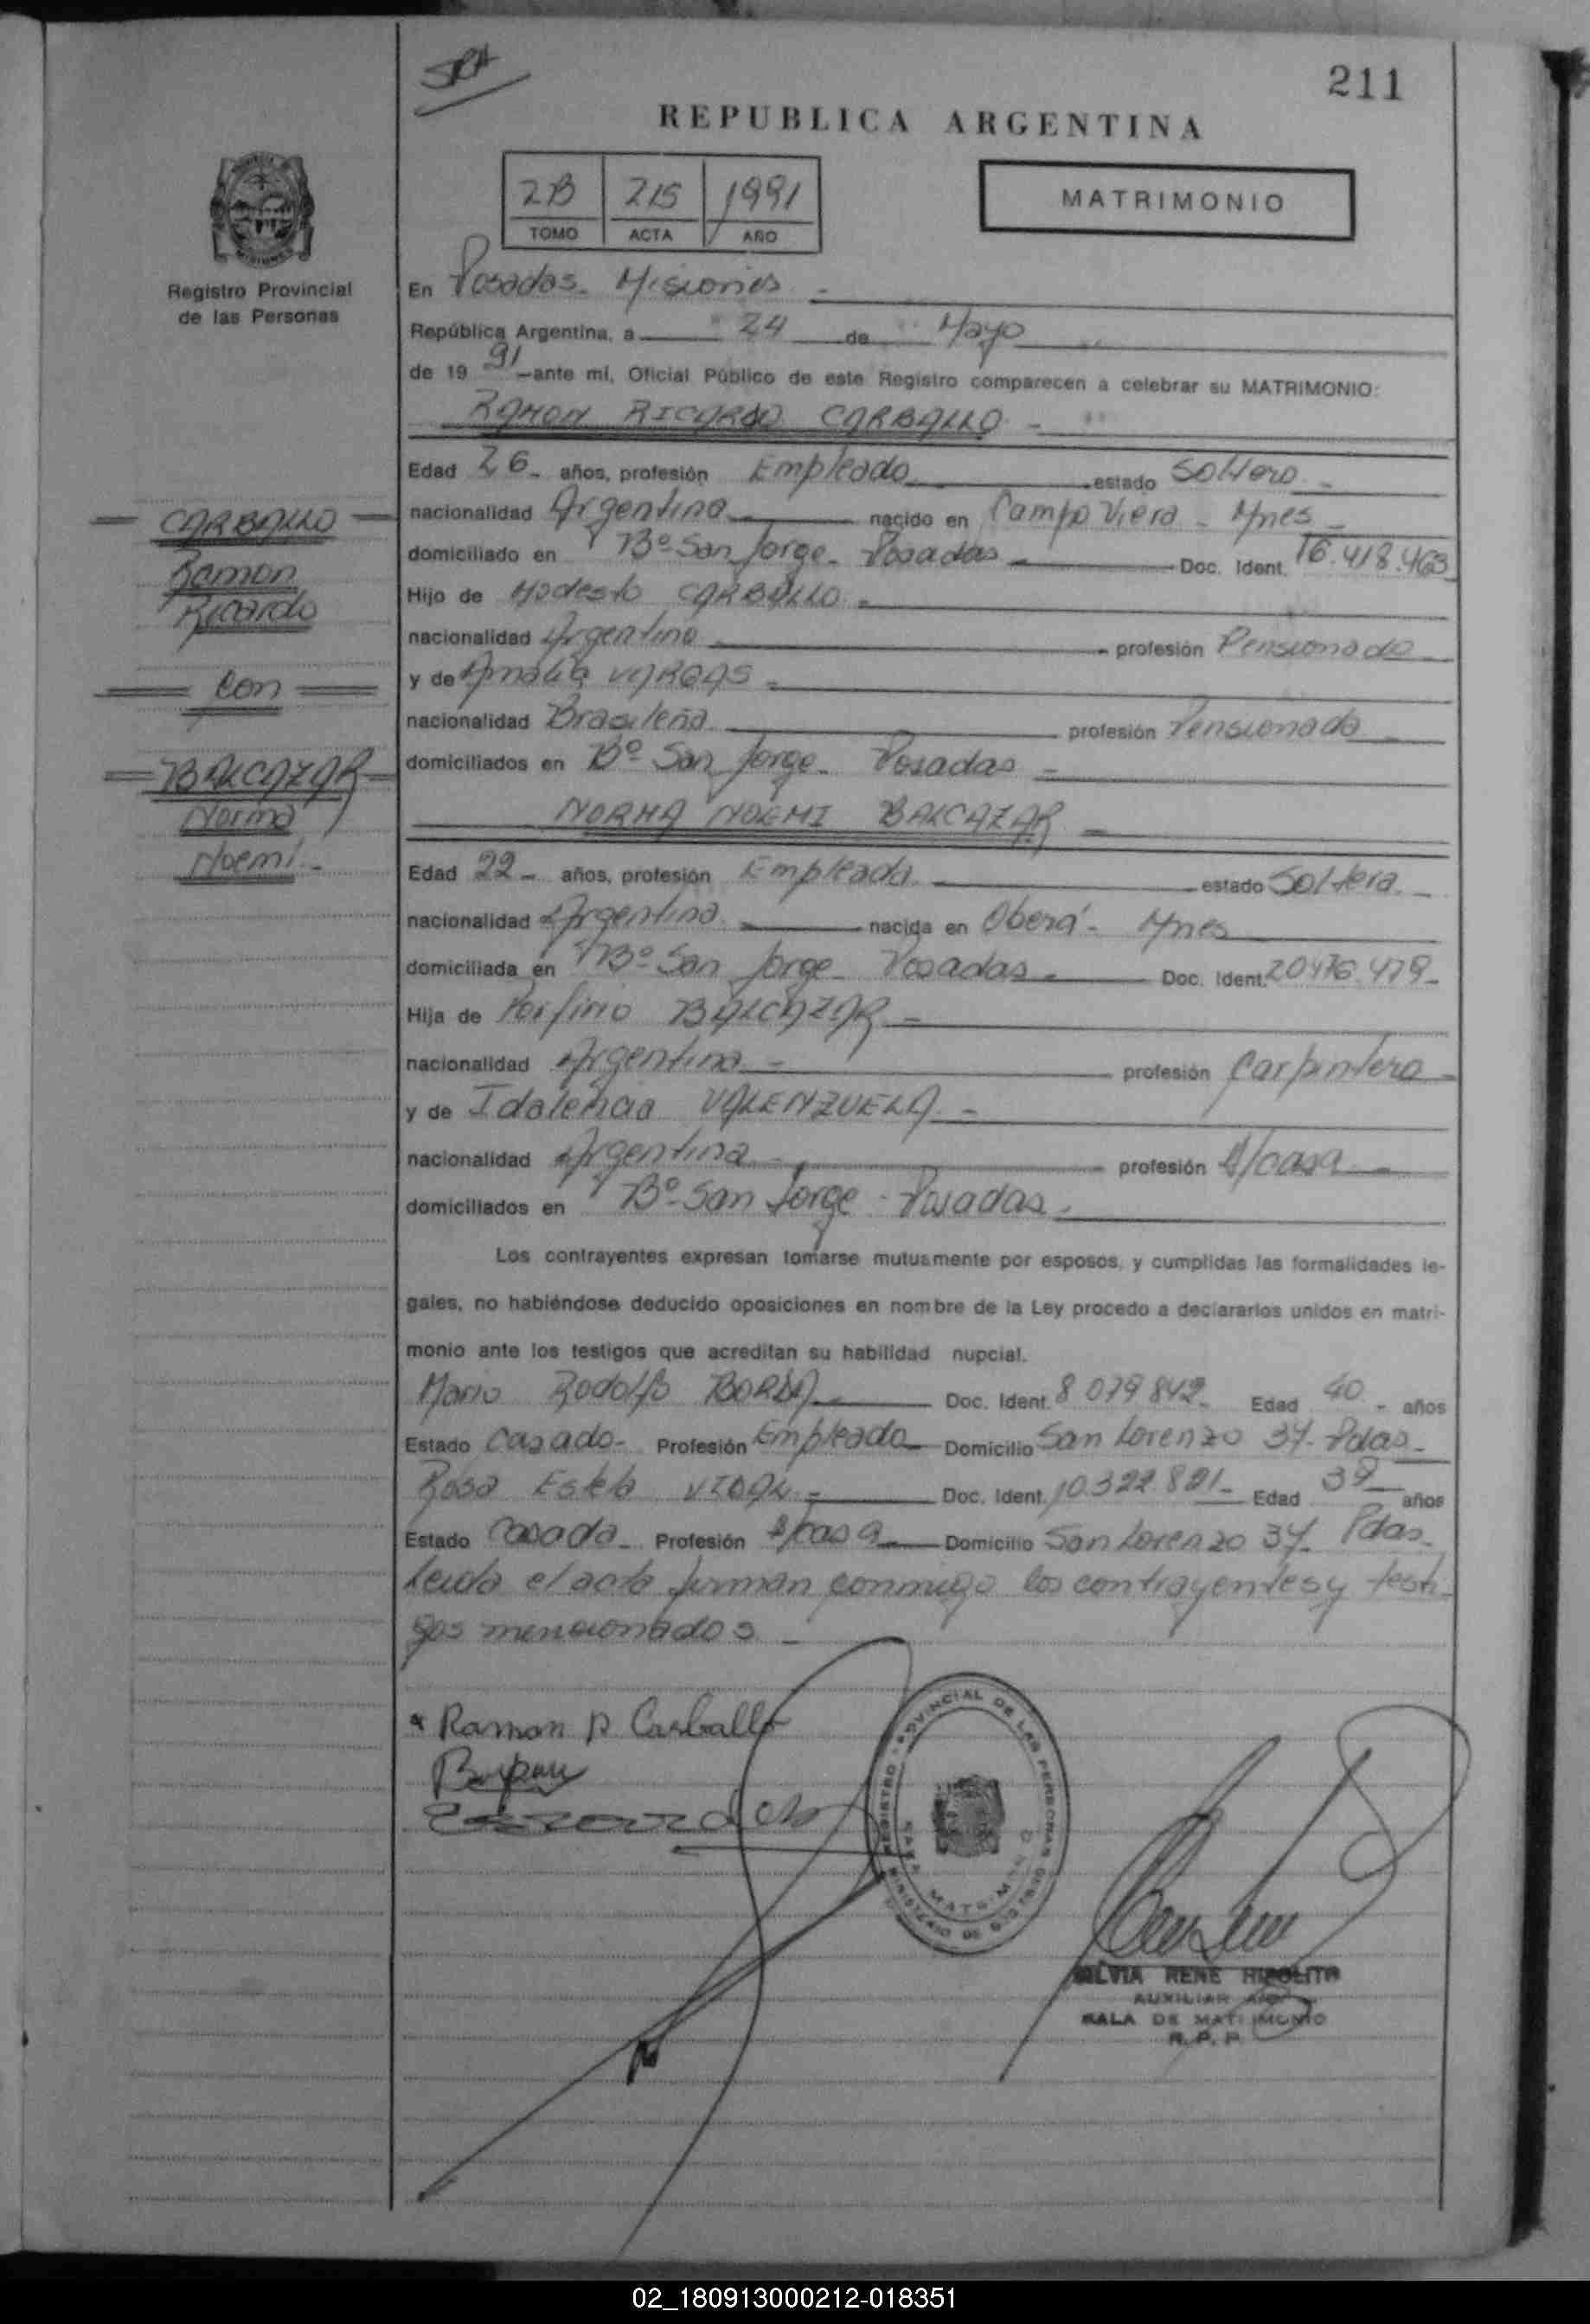 211
REPUBLICA ARGENTINA
2B 215 1991
TOMO ACTA AÑO
MATRIMONIO
Registro Provincial
de las Personas
En Posadas - Misiones -
República Argentina, a 24 de Mayo
de 19 91 -ante mí, Oficial Público de este Registro comparecen a celebrar su MATRIMONIO:
RAMON RICARDO CARBALLO -
Edad 26 - años, profesión Empleado estado Soltero -
nacionalidad Argentina nacido en Campo Viera - Mnes -
domiciliado en Bº San Jorge - Posadas - Doc. Ident. 16.418.463
Hijo de Modesto CARBALLO -
nacionalidad Argentina profesión Pensionado
y de Amalia VARGAS -
nacionalidad Brasileña profesión Pensionada -
domiciliados en Bº San Jorge - Posadas -
NORMA NOEMI BALCAZAR -
Edad 22 - años, profesión Empleada estado Soltera -
nacionalidad Argentina nacida en Oberá - Mnes
domiciliada en Bº San Jorge - Posadas - Doc. Ident. 20.476.479 -
Hija de Porfirio BALCAZAR -
nacionalidad Argentina - profesión Carpintero -
y de Idalencia VALENZUELA -
nacionalidad Argentina - profesión s/casa -
domiciliados en Bº San Jorge - Posadas -
Los contrayentes expresan tomarse mutuamente por esposos, y cumplidas las formalidades le-
gales, no habiéndose deducido oposiciones en nombre de la Ley procedo a declararlos unidos en matri-
monio ante los testigos que acreditan su habilidad nupcial.
Mario Rodolfo BORDA Doc. Ident. 8 079 842 - Edad 40 - años
Estado Casado - Profesión Empleado Domicilio San Lorenzo 37 - Pdas -
Rosa Estela VIDAL - Doc. Ident. 10.322.821 - Edad 39 años
Estado Casada - Profesión s/casa Domicilio San Lorenzo 37 - Pdas -
Leida el acta firman conmigo los contrayentes y testi-
gos mencionados -
CARBALLO
Ramon
Ricardo
con
BALCAZAR
Norma
Noemi -
Ramon R Carballo
REGISTRO PROVINCIAL DE LAS PERSONAS
MINISTERIO DE GOBIERNO
SALA MATRIMONIO
SILVIA RENE HIPOLITO
AUXILIAR
SALA DE MATRIMONIO
R. P. P.
02_180913000212-018351